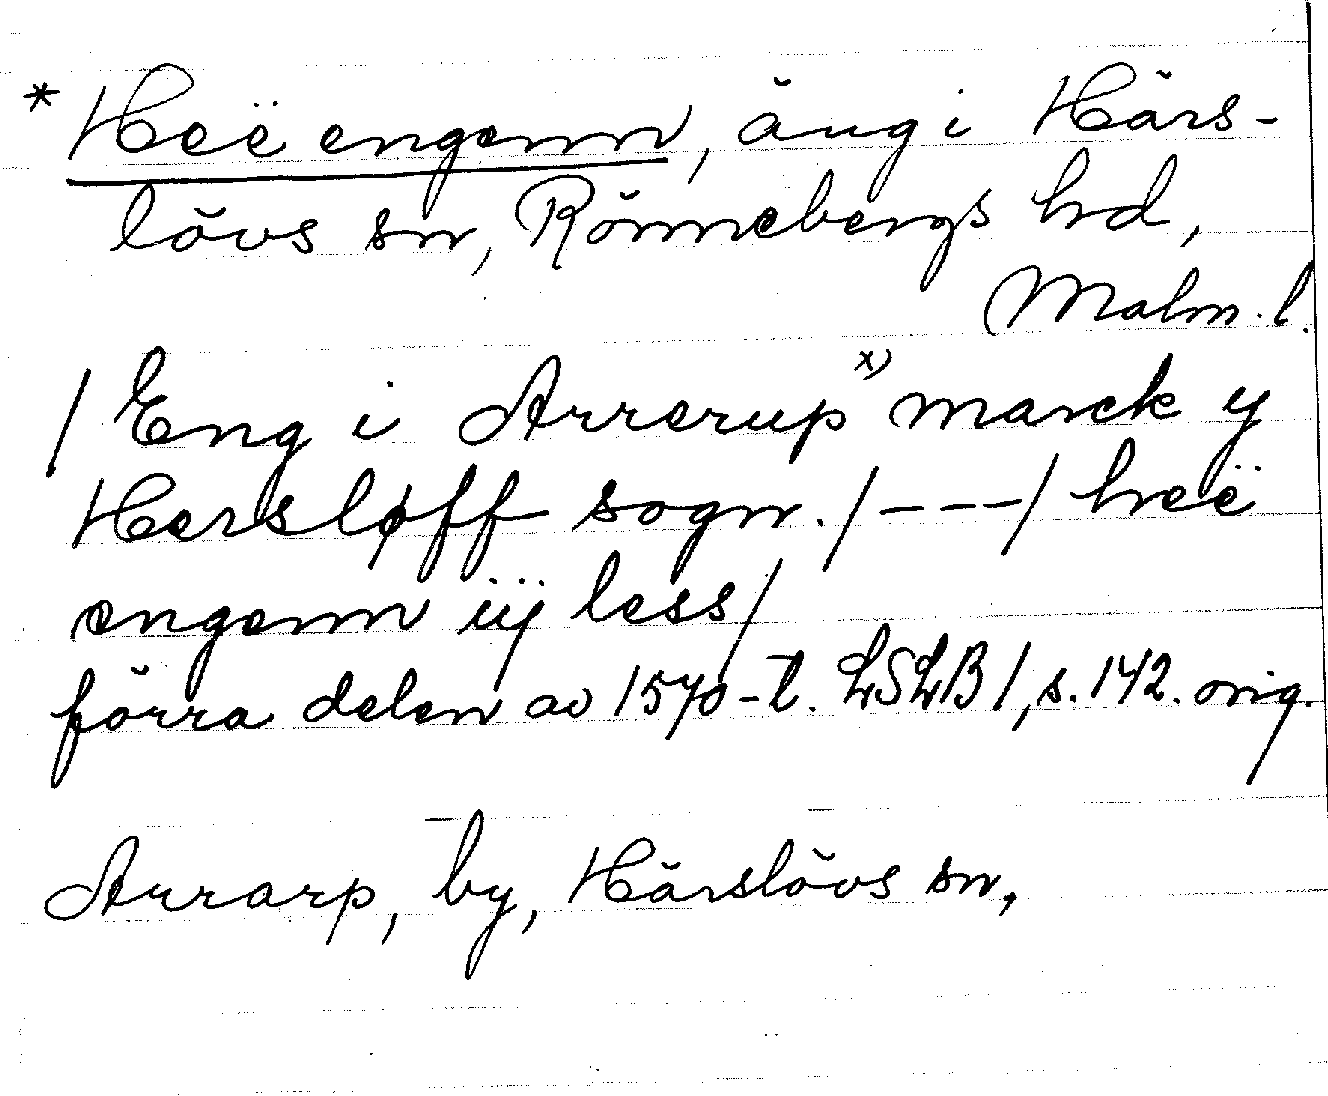 * Heë engenn, äng i Härs-
lövs sn, Rönnebergs hd,
Malm. l.
/ Eng i Arrerup x) marck y
Hersløff sogn. / - - - / heë
engenn iij less /
förra delen av 1570-t. LSLB 1, s. 142. orig.
Arrarp, by, Härslövs sn,